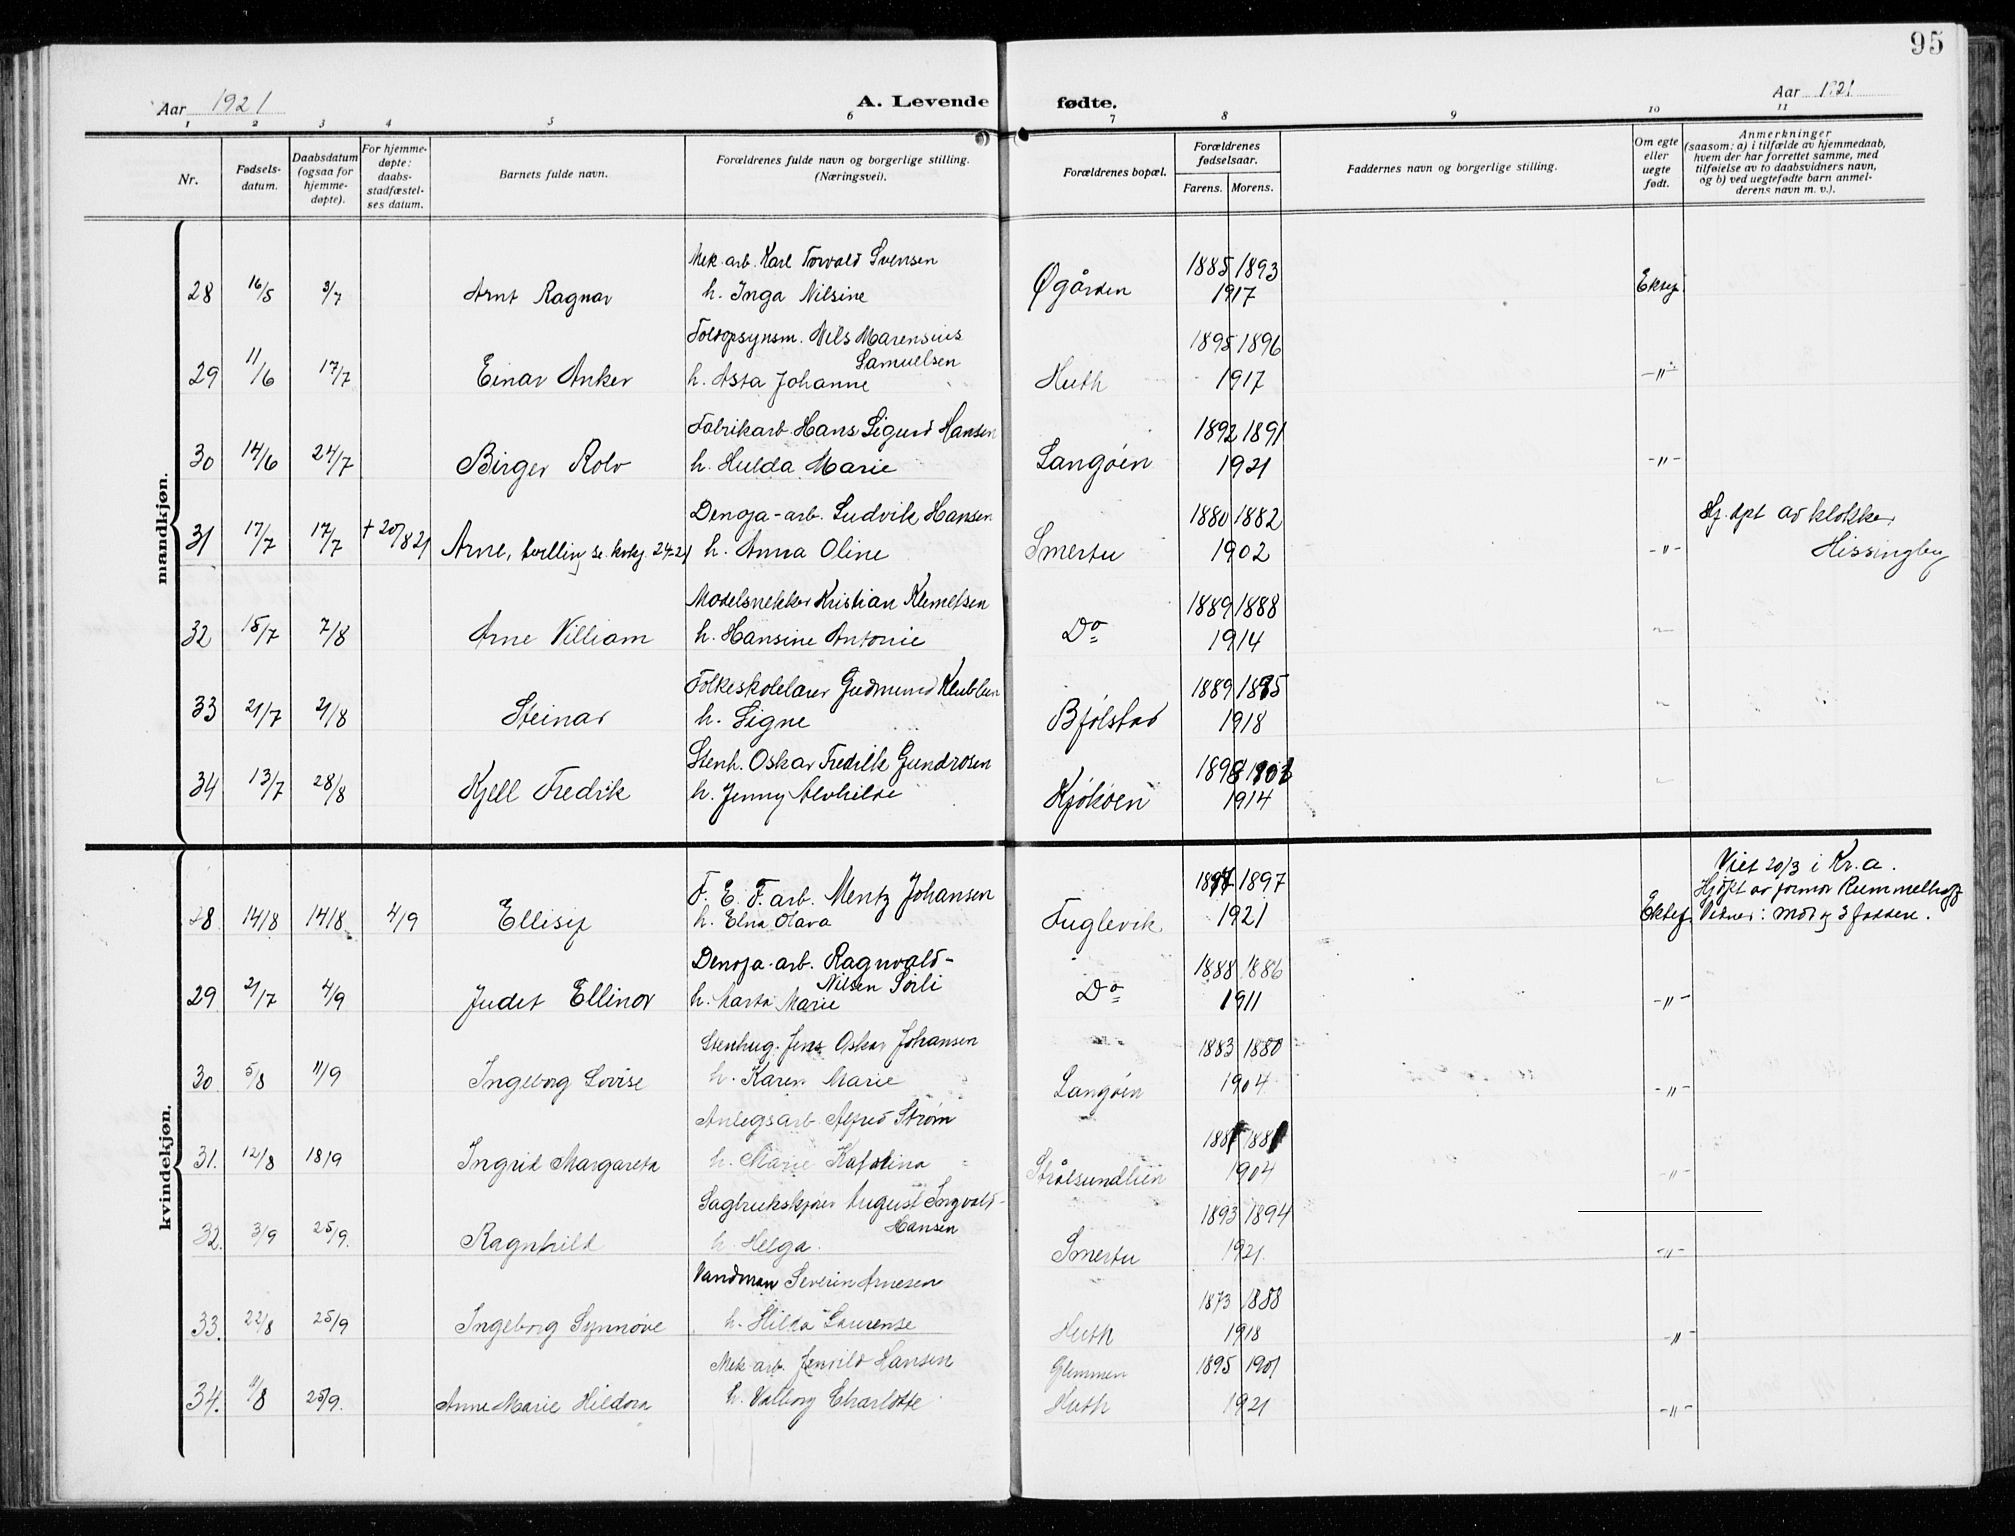 95
Aar 1921 A. Levende fødte. Aar 1921
1 2 3 4 5 6 7 8 9 10 11
Nr. Fødsels-datum. Daabsdatum (ogsaa for hjemme-døpte). For hjemme-døpte: daabs-stadfæstel-ses datum. Barnets fulde navn. Forældrenes fulde navn og borgerlige stilling. (Næringsvei). Forældrenes bopæl. Forældrenes fødselsaar. Farens. Morens. Faddernes navn og borgerlige stilling. Om egte eller uegte født. Anmerkninger (saasom: a) i tilfælde av hjemmedaab, hvem der har forrettet samme, med tilføielse av to daabsvidners navn, og b) ved uegtefødte barn anmel-derens navn m. v.).
mandkjøn.
Mek. arb. Karl Torvald Svensen 1885 1893
28 16/5 3/7 Arnt Ragnar h. Inga Nilsine Øgården 1917 Ektef
Toldopsynsm. Nils Marensius 1895 1896
Samuelsen
29 11/6 17/7 Einar Anker h. Asta Johanne Huth 1917 -"-
Fabrikarb. Hans Sigurd Hansen 1892 1891
30 14/6 24/7 Birger Rolv h. Hulda Marie Langøen 1921 -"-
Denoja-arb. Ludvik Hansen 1880 1882 Hj. dpt av klokker
31 17/7 17/7 + 20/8 21 Arne, tvilling se kvkj. 24-21 h. Anna Oline Smertu 1902 -"- Hissingby
Modelsnekker Kristian Klemetsen 1889 1888
32 15/7 7/8 Arne Villiam h. Hansine Antonie Do 1914 -"-
Folkeskolelærer Gudmund 1889 1895
33 21/7 21/8 Steinar h. Signe Bjølstad 1918 -"-
Stenh. Oskar Fredrik Gundrosen
34 13/7 28/8 Kjell Fredrik h. Jenny Alvhilde Kjøkøen 1914 -"-
kvindekjøn.
Viet 20/3 i Kr.a.
F. E. F. arb. Mentz Johansen 1897 Hjdøpt av jormor Rummelhoff
28 14/8 14/8 4/9 Ellisif h. Elna Olava Fuglevik 1921 Ektef Vidner: Mor og 3 faddere.
Denoja-arb. Ragnvald- 1888 1886
Nilsen Sørli
29 21/7 4/9 Judit Ellinor h. Marta Marie Do 1911 -"-
Stenhug. Jens Oskar Johansen 1883 1880
30 5/8 11/9 Ingeborg Lovise h. Karen Marie Langøen 1904 -"-
Anlegsarb. Alfred Strøm
31. 12/8 18/9 Ingrid Margareta h. Marie Katolina Strålsundlien 1904 -"-
Sagbrukskjører August Ingvald- 1893 1894
Hansen
32. 3/9 25/9. Ragnhild h. Helga. Smertu 1921 -"-
Vandman Severin Arnesen 1873 1888
33. 22/8 25/9 Ingeborg Synnøve h. Hilda Laurense Huth 1918 -"-
Mek. arb. Jenvild Hansen Glemmen 1895 1901
34. 11/8 25/9. Anne Marie Hildora h. Valborg Charlotte Huth 1921 -"-